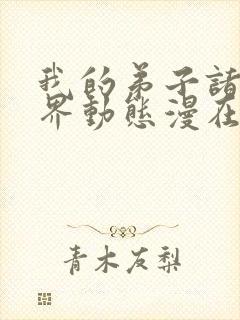 我的弟子諸
界動態漫在
青木友梨